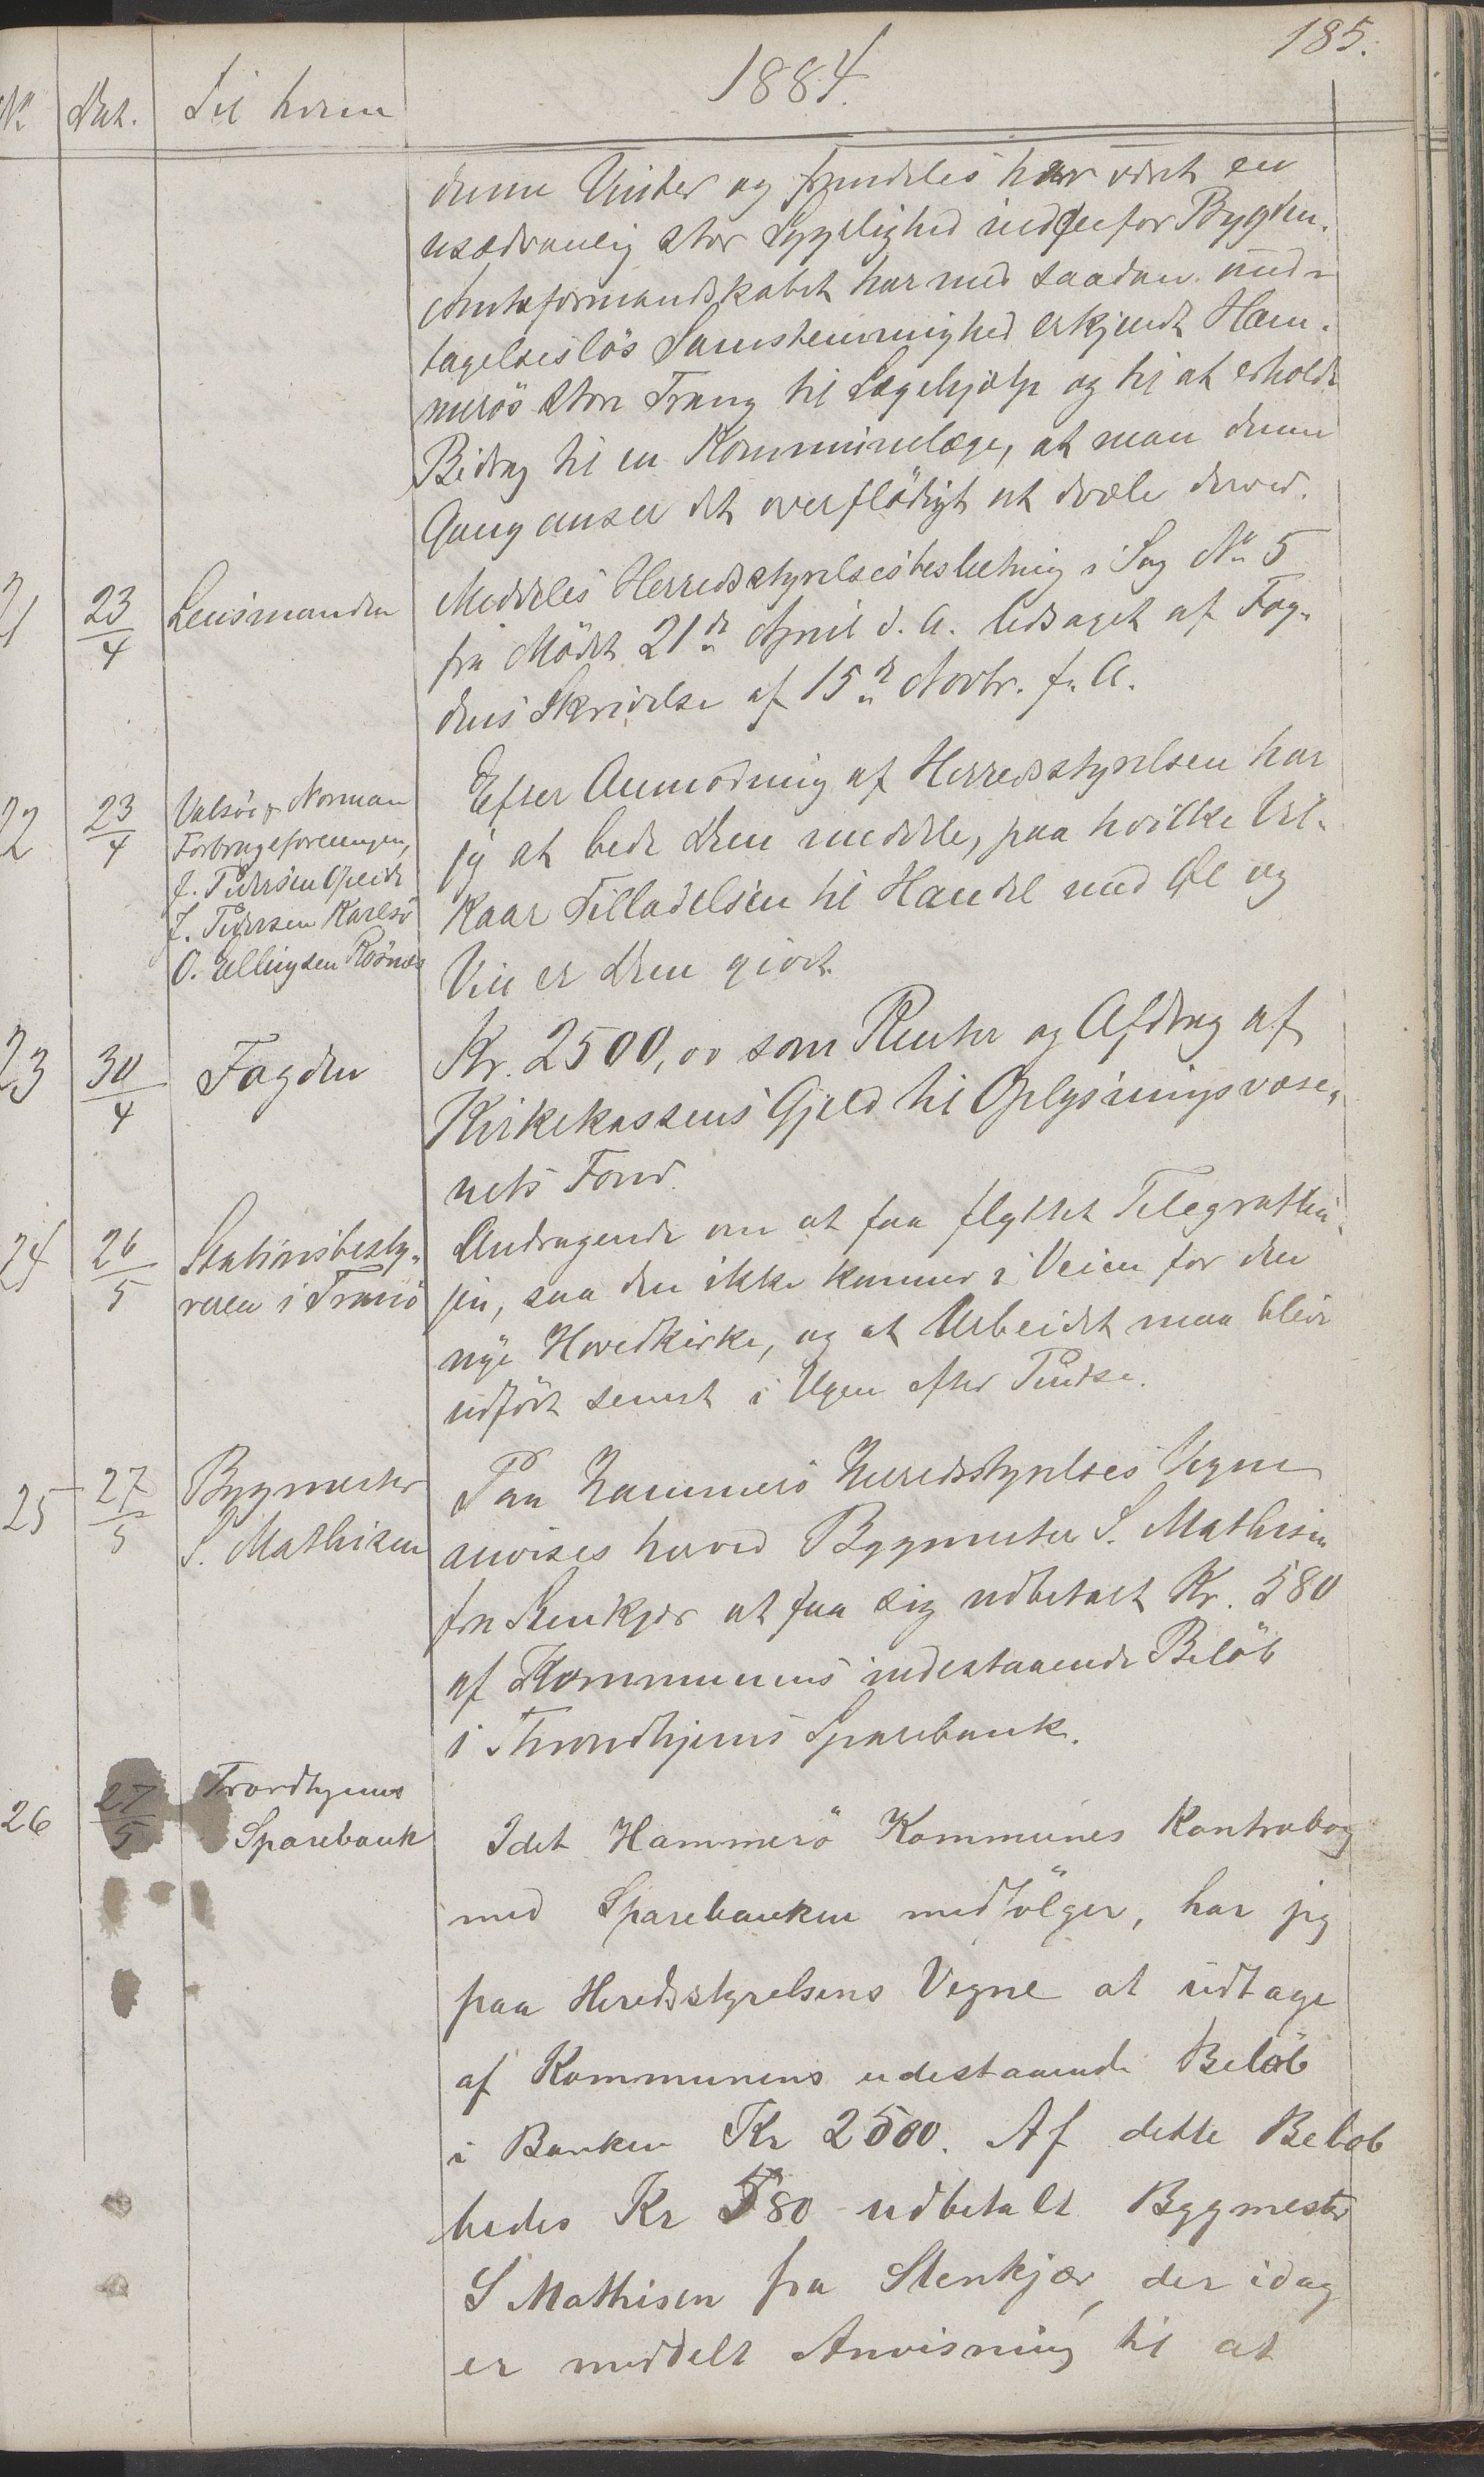 185.
1884.
No Dat. Til hvem
denne Vinter og fremdeles har været en
usædvanlig stor Sygelighed indenfor Bygden.
Amtsformandskabet har med saadan und-
tagelseslös Samstemmighed erkjendt Ham-
merös store Trang til Lægehjælp og til at erholde
Bidrag til en Kommunelæge, at man denne
Gang anser det overflödigt at dvæle derved.
21 23/4 Lensmanden
Meddeles Herredsstyrelsesbeslutning i Sag No 5
fra Mödet 21de April d. A. ledsaget af Fog-
dens Skrivelse af 15de Novbr. f. A.
22 23/4
Norman
Forbrugsforeningen,
J. Pedersen Opeide
J. Pedersen Karlsö
O. Ellingsen Rösnæs
Efter Anmodning af Herredsstyrelsen har
jeg at bede Dem meddele, paa hvilke Vil-
kaar Tilladelsen til Handel med Øl og
Vin er Dem givet.
23 30/4 Fogden
Kr. 2500,00 som Renter og Afdrag af
Kirkekassens Gjeld til Oplysningsvæse-
nets Fond.
24 26/5 Stationsbesty-
reren i Tranö
Andragende om at faa flyttet Telegrafli-
jen, saa den ikke kommer i Veien for den
nye Hovedkirke, og at Arbeidet maa blive
udfört senest i Ugen efter Pindse.
25 27/5 Bygmester
S. Mathisen
Paa Hammerö Herredsstyrelses Vegne
anvises herved Bygmester S. Mathisen
fra Stenkjær at faa sig udbetalt Kr. 580
af Kommunens indestaaende Belöb
i Throndhjems Sparebank.
26 27/5 Trondhjems
Sparebank
Idet Hammerö Kommunes Kontrabog
med Sparebanken medfölger, har jeg
paa Heredsstyrelsens Vegne at udtage
af Kommunens udestaaende Beløb
i Banken Kr 2500. Af dette Belob
bedes Kr 580 udbetalt Bygmester
S Mathisen fra Stenkjær, der idag
er meddelt Anvisning til at